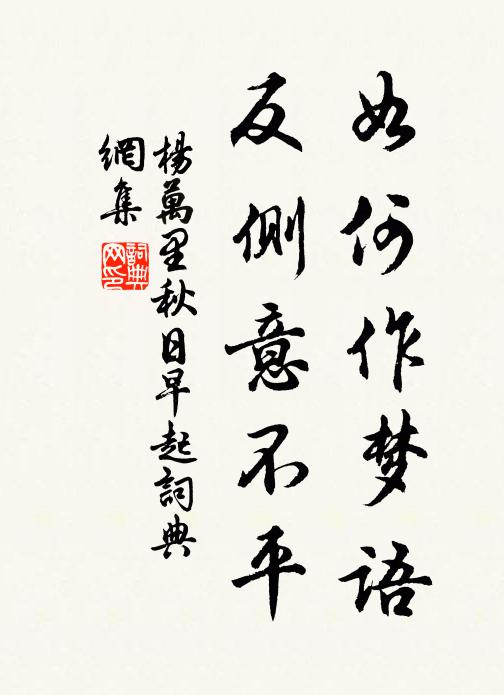 如何作梦语
反侧意不平
楊萬里秋日早起詞典
網集
詞典
网印